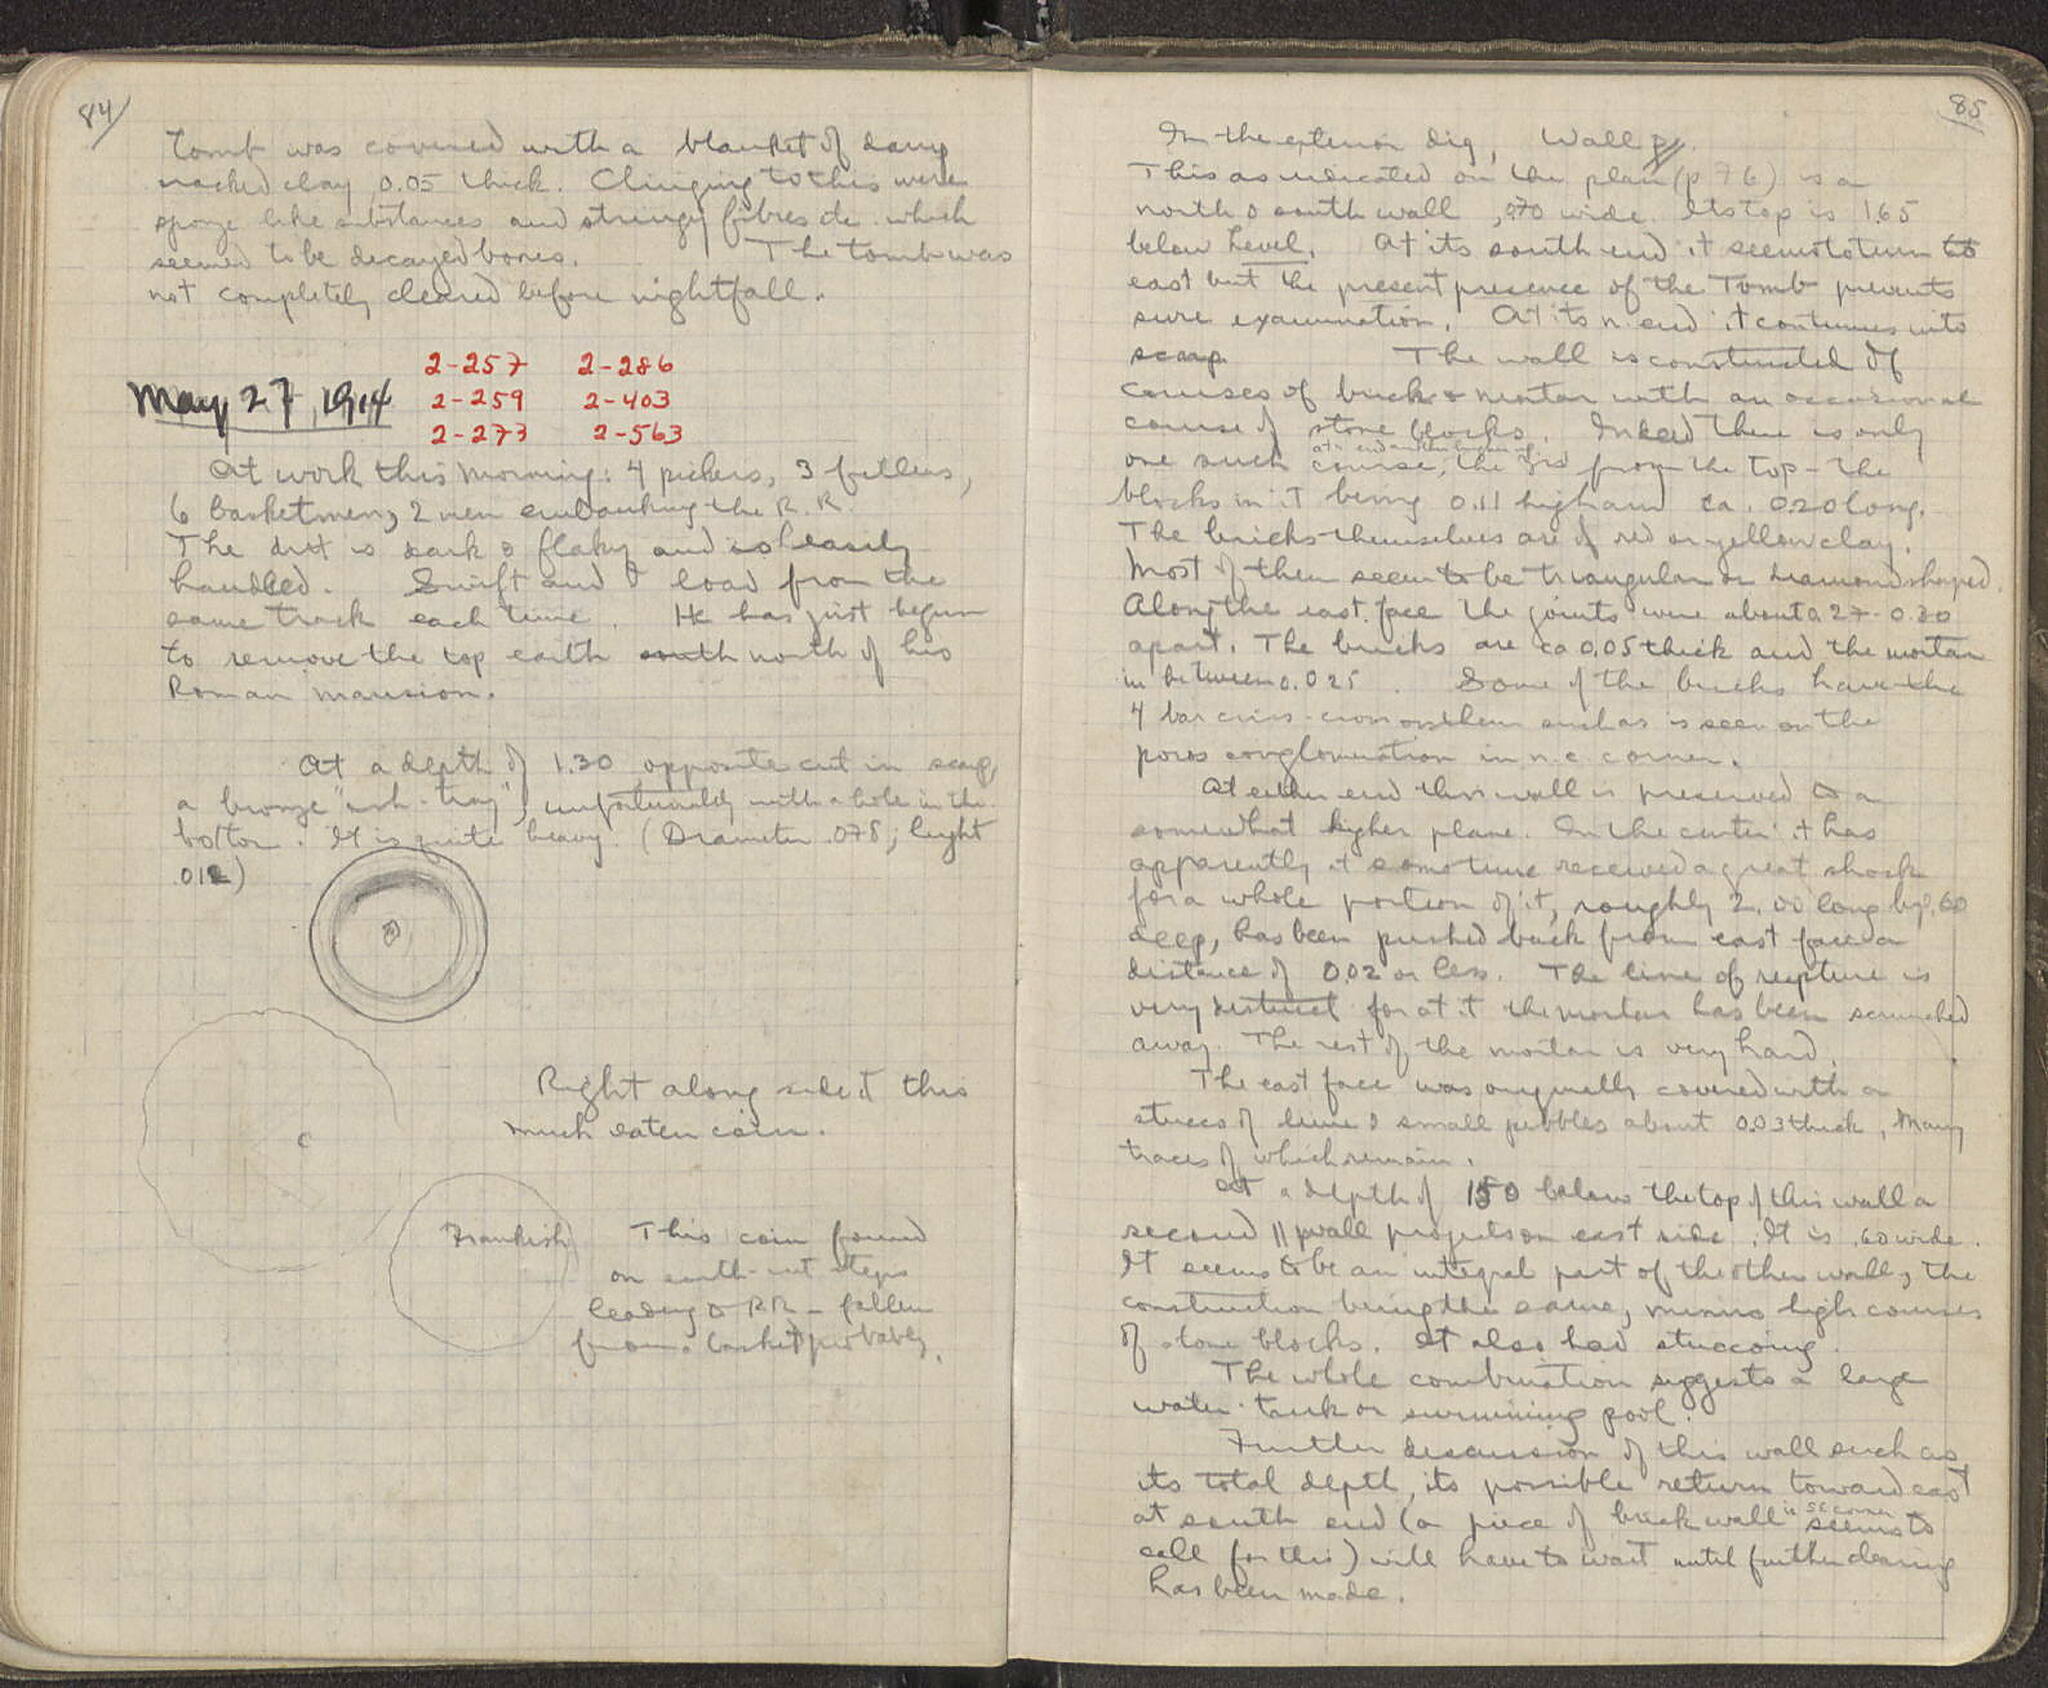 84/
Tomb was covered with a blanket of damp
packed clay 0.05 thick. Clinging to this were
sponge like substances and stringy fibres etc. which
seemed to be decayed bones. The tomb was
not completely cleared before nightfall.
2-257 2-286
May 27, 1914 2-259 2-403
2-273 2-563
At work this morning: 4 pickers, 3 fillers,
6 basketmen, 2 men embanking the R.R.
The dirt is dark & flaky and is easily
handled. Swift and I load from the
same track each time. He has just begun
to remove the top earth south north of his
Roman mansion.
At a depth of 1.30 opposite cut in scarp,
a bronze "ash-tray", unfortunately with a hole in the
bottom. It is quite heavy. (Diameter .078; hight
.012)
Right along side of this
much eaten coin.
Frankish This coin found
on earth-cut steps
leading to RR - fallen
from a basket probably.
85
In the exterior dig, Wall
This as indicated on the plan (p 76) is a
north & south wall, .70 wide. Its top is 1.65
below Level. At its south end it seems to turn to
east but the present presence of the Tomb prevents
sure examination. At its n. end it continues into
scarp. The wall is constructed of
courses of brick & mortar with an occasional
course of stone blocks. Indeed there is only
one such course, the 3rd from the top - the
blocks in it being 0.11 high and ca. 0.20 long.
The bricks themselves are of red or yellow clay.
Most of them seem to be triangular or diamond shaped.
Along the east face the joints were about 0.27-0.30
apart. The bricks are ca 0.05 thick and the mortar
in between 0.025. Some of the bricks have the
4 bar criss-cross on them such as is seen on the
poros conglomeration in n.e. corner.
At either end this wall is preserved to a
somewhat higher plane. In the center it has
apparently at sometime received a great shock
for a whole portion of it, roughly 2.00 long by .60
deep, has been pushed back from east face a
distance of 0.02 or less. The line of rupture is
very distinct for at it the mortar has been scrunched
away. The rest of the mortar is very hard.
The east face was originally covered with a
stucco of lime & small pebbles about 0.03 thick, many
traces of which remain.
At a depth of 1.50 below the top of this wall a
second || wall projects on east side. It is .60 wide.
It seems to be an integral part of the other wall, the
construction being the same, minus high courses
of stone blocks. It also had stuccoing.
The whole combination suggests a large
water-tank or swimming pool.
Further discussion of this wall such as
its total depth, its possible return toward east
at south end (a piece of brick wall in SE corner seems to
call for this) will have to wait until further clearing
has been made.